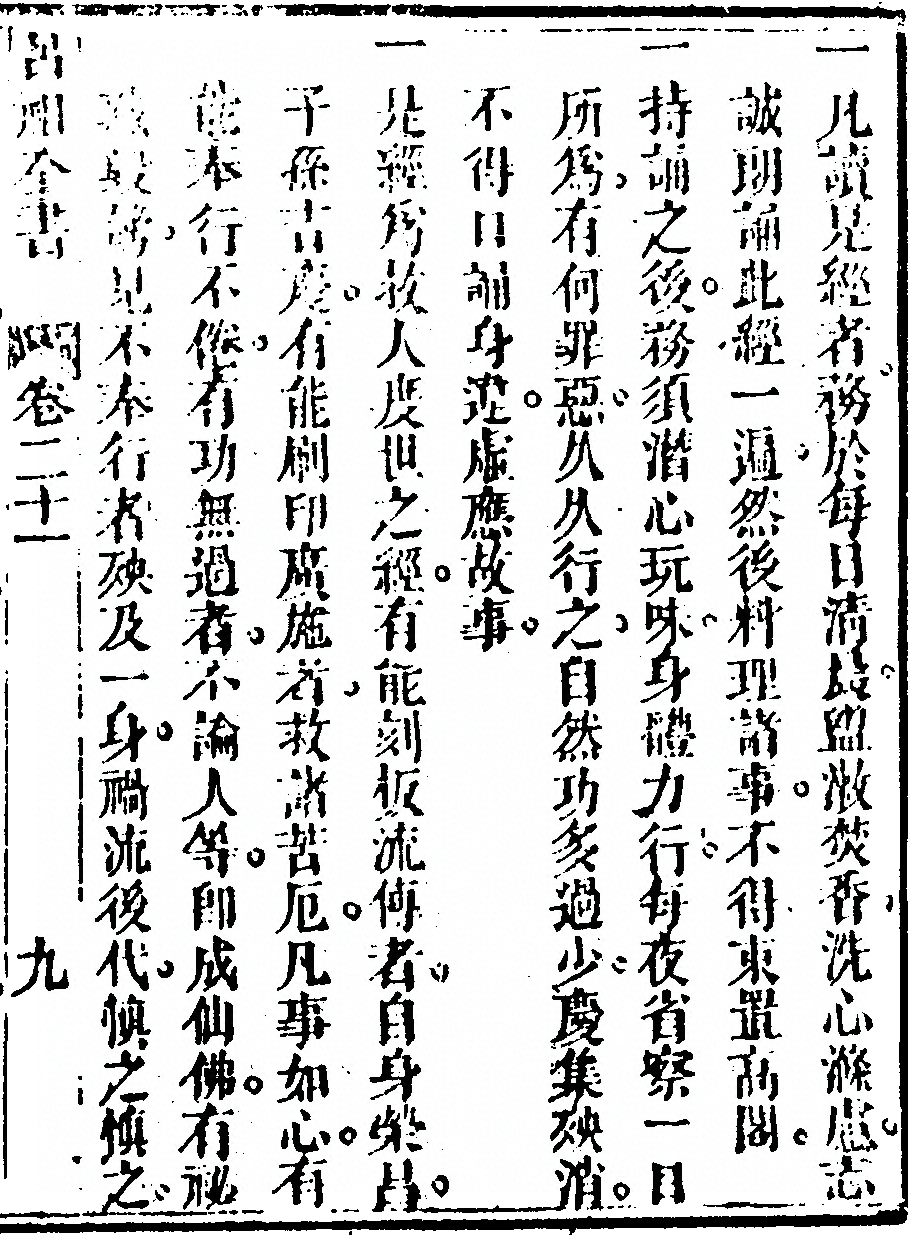 一凡讀是經者務於每日清晨盥漱焚香洗心滌慮志
誠朗誦此經一遍然後料理諸事不得束置高閣
一持誦之後務須潛心玩味身體力行每夜省察一日
所爲有何罪惡久久行之自然功多過少慶集殃消
不得口誦身違虛應故事
一是經爲救人度世之經有能刻板流傳者自身榮昌
子孫吉慶有能刷印廣施者救諸苦厄凡事如心有
能奉行不倦有功無過者不論人等即成仙佛有祕
毀謗見不奉行者殃及一身禍流後代愼之愼之
呂祖全書 卷二十一 九